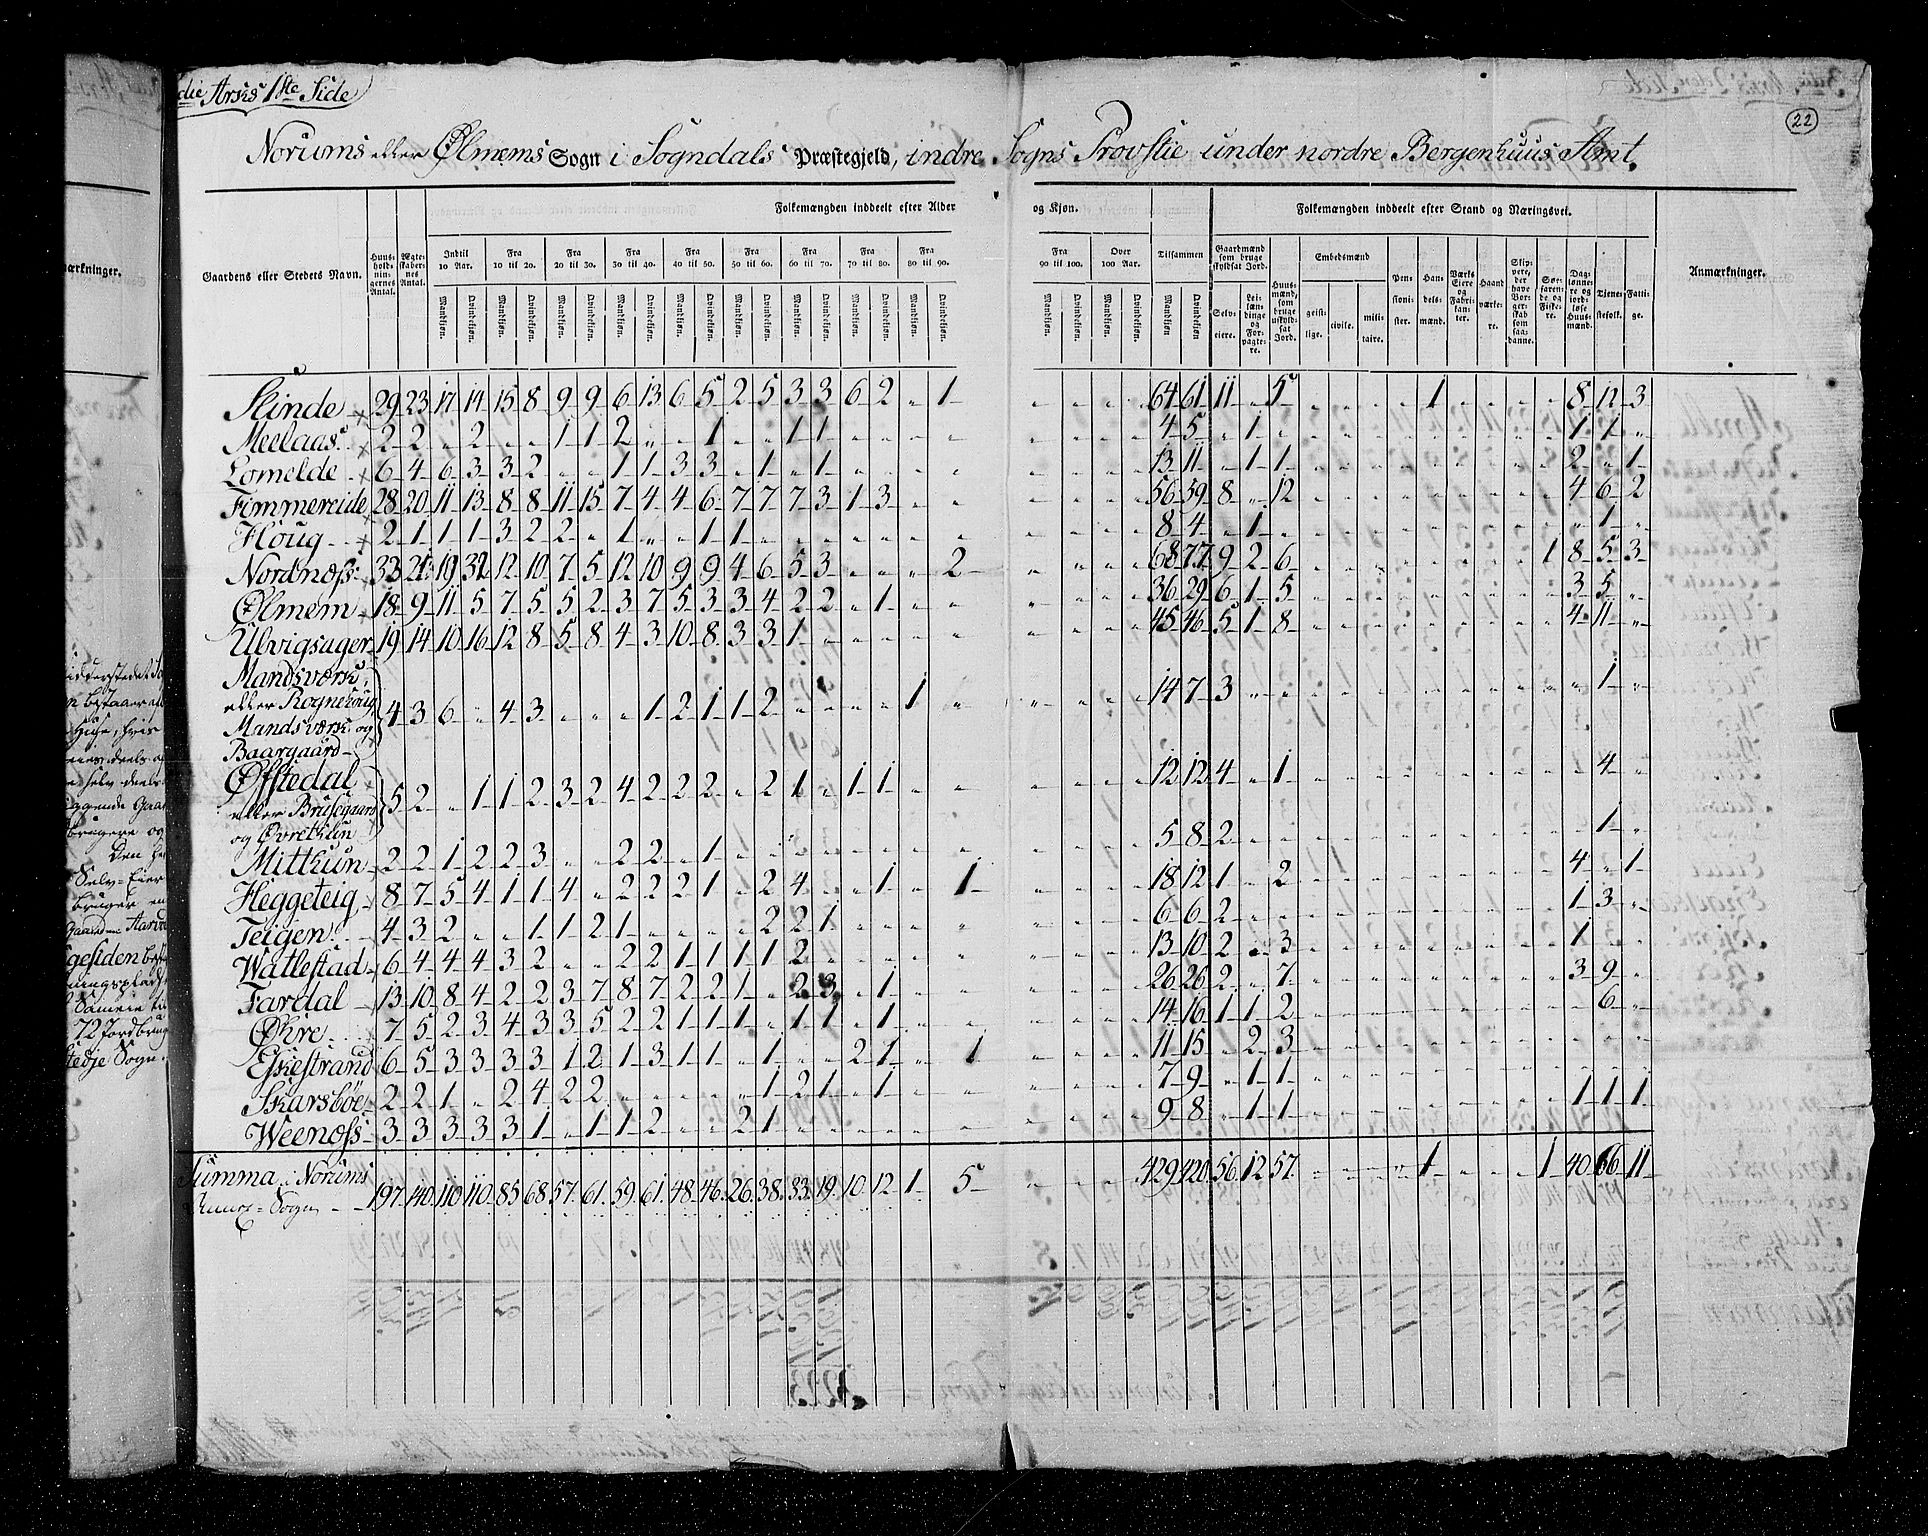 die Arks 1ste Side
22
Norums eller Ølmems Sogn i Sogndals Præstegjeld, indre Sogns Provstie under nordre Bergenhuus Amt.
Folkemængden inddeelt efter Alder og Kjøn. Folkemængden inddeelt efter Stand og Næringsvei.
Gaardens eller Stedets Navn. Huusholdningernes Antal. Ægteskabernes Antal. Indtil 10 Aar. Fra 10 til 20. Fra 20 til 30. Fra 30 til 40. Fra 40 til 50. Fra 50 til 60. Fra 60 til 70. Fra 70 til 80. Fra 80 til 90. Fra 90 til 100. Over 100 Aar. Tilsammen Gaardmænd som bruge skyldsat Jord. Huusmænd, som bruge uskyldsat Jord. Embedsmænd Pensionister. Handelsmænd. Værks Eiere og Fabrikanter. Haandværkere. Skippere, der have Borgerskab som saadanne. Søefarende og Fiskere. Daglønnere og jordløse Huusmænd. Tjenestefolk. Fattige. Anmærkninger.
Mandkjøn. Qvindekjøn. Mandkjøn. Qvindekjøn. Mandkjøn. Qvindekjøn. Mandkjøn. Qvindekjøn. Mandkjøn. Qvindekjøn. Mandkjøn. Qvindekjøn. Mandkjøn. Qvindekjøn. Mandkjøn. Qvindekjøn. Mandkjøn. Qvindekjøn. Mandkjøn Qvindekjøn. Mandkjøn Qvindekjøn. Mandkjøn Qvindekjøn. Selveiere. Leilændinge og Forpagtere. geistlige. civile. militaire.
Slinde 29 23 17 14 15 8 9 9 6 13 6 5 2 5 3 3 6 2 „ 1 „ „ „ „ 64 61 11 „ 5 „ „ „ „ 1 „ „ „ „ 8 12 3
Meelaas 2 2 „ 2 „ „ 1 1 2 „ „ 1 „ „ 1 1 „ „ „ „ „ „ „ „ 4 5 „ 1 „ „ „ „ „ „ „ „ „ „ 1 1 „
Lomelde 6 4 6 3 3 2 „ „ 1 1 3 3 „ 1 „ 1 „ „ „ „ „ „ „ „ 13 11 „ 1 1 „ „ „ „ „ „ „ „ „ 2 „ 1
Fimmereide 28 20 11 13 8 8 11 15 7 4 4 6 7 7 7 3 1 3 „ „ „ „ „ „ 56 59 8 „ 12 „ „ „ „ „ „ „ „ „ 4 6 2
Houg 2 1 1 1 3 2 2 „ 1 „ „ 1 1 „ „ „ „ „ „ „ „ „ „ „ 8 4 „ 1 „ „ „ „ „ „ „ „ „ „ „ 1 „
Nordnæss 33 21 19 32 12 10 7 5 12 10 9 9 4 6 5 3 „ „ „ 2 „ „ „ „ 68 77 9 2 6 „ „ „ „ „ „ „ „ 1 8 5 3
Ølmem 18 9 11 5 7 5 5 2 3 7 5 3 3 4 2 2 „ 1 „ „ „ „ „ „ 36 29 6 1 5 „ „ „ „ „ „ „ „ „ 3 5 „
Ulvigsager 19 14 10 16 12 8 5 8 4 3 10 8 3 3 1 „ „ „ „ „ „ „ „ „ 45 46 5 1 8 „ „ „ „ „ „ „ „ „ 4 11 „
Mandsværk,
eller Rognehoug
Mandsværk og 4 3 6 „ 4 3 „ „ „ 1 2 1 1 2 „ „ „ „ 1 „ „ „ „ „ 14 7 3 „ „ „ „ „ „ „ „ „ „ „ „ 1 „
Baargaard
Øfstedal
eller Brusegaard 5 2 „ 1 1 2 3 2 4 2 2 2 „ 2 1 „ 1 1 „ „ „ „ „ „ 12 12 4 „ 1 „ „ „ „ „ „ „ „ „ „ 4 „
og Øvrekun
Mittkun 2 2 1 2 2 3 „ „ 2 2 „ 1 „ „ „ „ „ „ „ „ „ „ „ „ 5 8 2 „ „ „ „ „ „ „ „ „ „ „ „ 1 „
Heggeteig 8 7 5 4 1 1 4 „ 2 2 2 1 „ 2 4 „ „ 1 „ 1 „ „ „ „ 18 12 1 „ 2 „ „ „ „ „ „ „ „ „ 4 „ 1
Teigen 4 3 2 „ „ 1 1 2 1 „ „ „ „ 2 2 1 „ „ „ „ „ „ „ „ 6 6 2 „ „ „ „ „ „ „ „ „ „ „ 1 3 „
Watlestad 6 4 4 4 3 2 „ „ 2 2 1 1 1 1 2 „ „ „ „ „ „ „ „ „ 13 10 2 „ 3 „ „ „ „ „ „ „ „ „ 1 „ „
Fardal 13 10 8 4 2 2 3 7 8 7 2 2 1 „ 2 3 „ 1 „ „ „ „ „ „ 26 26 2 „ 7 „ „ „ „ „ „ „ „ „ 3 9 „
Øhre 7 5 2 3 4 3 3 5 2 2 1 1 1 „ 1 1 „ 1 „ „ „ „ „ „ 14 16 1 1 2 „ „ „ „ „ „ „ „ „ „ 6 „
Eskestrand 6 5 3 3 3 3 1 2 1 3 1 1 „ 1 „ „ 2 1 „ 1 „ „ „ „ 11 15 „ 2 3 „ „ „ „ „ „ „ „ „ „ „ „
Skarsbøe 2 2 1 „ 2 4 2 2 „ „ „ „ „ 1 2 1 „ 1 „ „ „ „ „ „ 7 9 „ 1 1 „ „ „ „ „ „ „ „ „ „ „ „
Weenæss 3 3 3 3 3 1 „ 1 1 2 „ „ 2 1 „ „ „ „ „ „ „ „ „ „ 9 8 „ 1 1 „ „ „ „ „ „ „ „ „ 1 1 1
Summa: Norums
Annex-Sogn 197. 140. 110 110. 85 68. 57. 61. 59. 61. 48. 46. 26. 38. 33. 19. 10. 12. 1 5 „ „ „ „ 429. 420. 56. 12 57. „ „ „ „ 1 „ „ „ 1 40 66 11